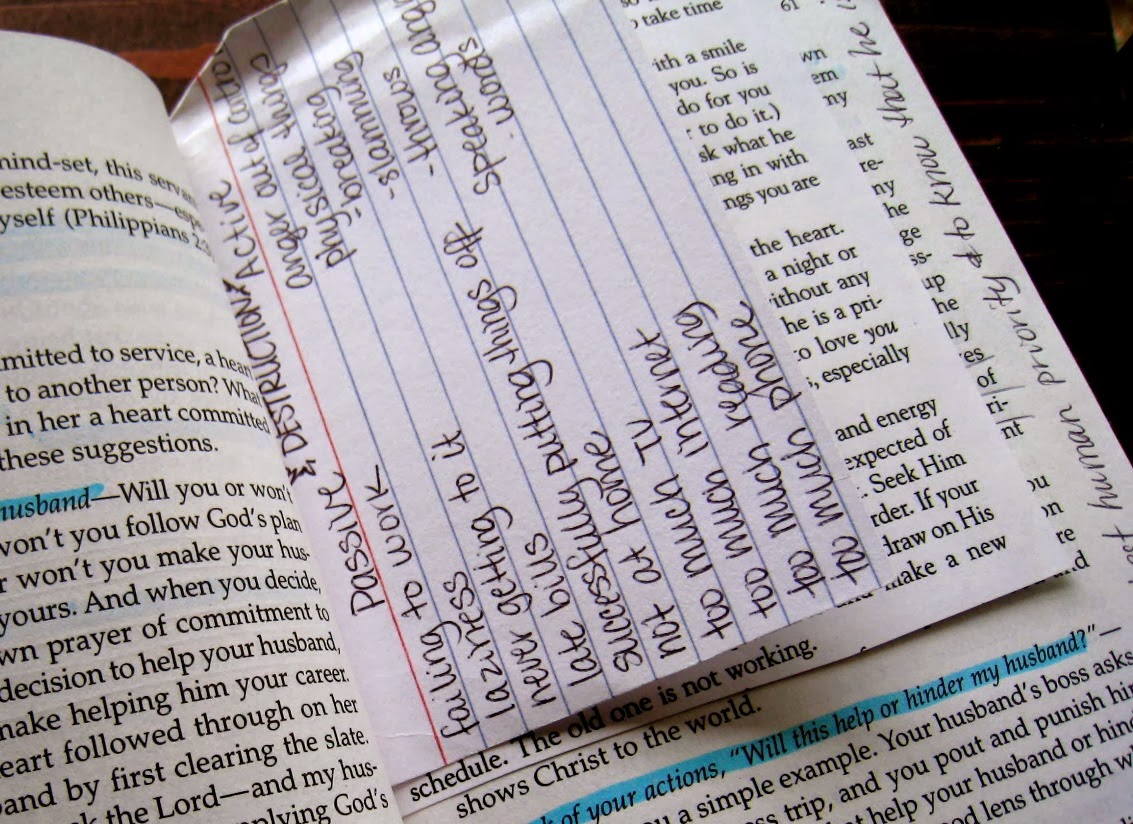 mind-set, this
esteem others—
myself (Philippians
mitted to service, a heart
to another person? What
in her a heart committed
these suggestions.
husband—Will you or won't
won't you follow God's plan
r won't you make your hus-
yours. And when you decide,
wn prayer of commitment to
decision to help your husband,
make helping him your career.
eart followed through on her
and by first clearing the slate.
the Lord—and my hus-
plying God's
Passive & DESTRUCTION & Active
failing to work
laziness
never getting to it
late bills
successfully putting things off
not at home
too much TV
too much internet
too much reading
too much phone
anger out of
physical things
-breaking
-slamming
-throws
speaking
words
take time
ith a smile
you. So is
do for you
to do it.)
sk what he
ng in with
ngs you are
the heart.
a night or
ithout any
he is a pri-
o love you
, especially
and energy
expected of
. Seek Him
rder. If your
draw on His
make a new
61
wn
em
ny
ast
re-
ny
he
ge
ss-
up
he
lly
es
of
ri-
nt
ou
on
re
nd
human priority & to know that he
schedule. The old one is not working.
shows Christ to the world.
of your actions, "Will this help or hinder my husband?"—
a simple example. Your husband's boss asks
ss trip, and you pout and punish him
help your husband or hind
lens through